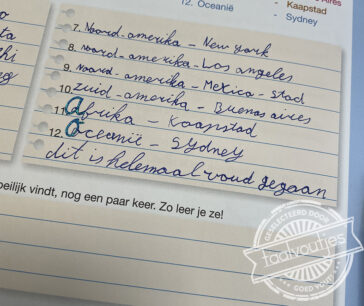 12. Oceanië
- Kaapstad
- Sydney
7. Noord-amerika - New york
8. Noord-amerika - Los angeles
9. Noord-amerika - Mexico-stad
10. Zuid-amerika - Buenos aires
11. Afrika - Kaapstad
12. Oceanië - Sydney
dit is helemaal voud gegaan
oeilijk vindt, nog een paar keer. Zo leer je ze!
GESELECTEERD DOOR
taalvoutjes
GOED VOUT